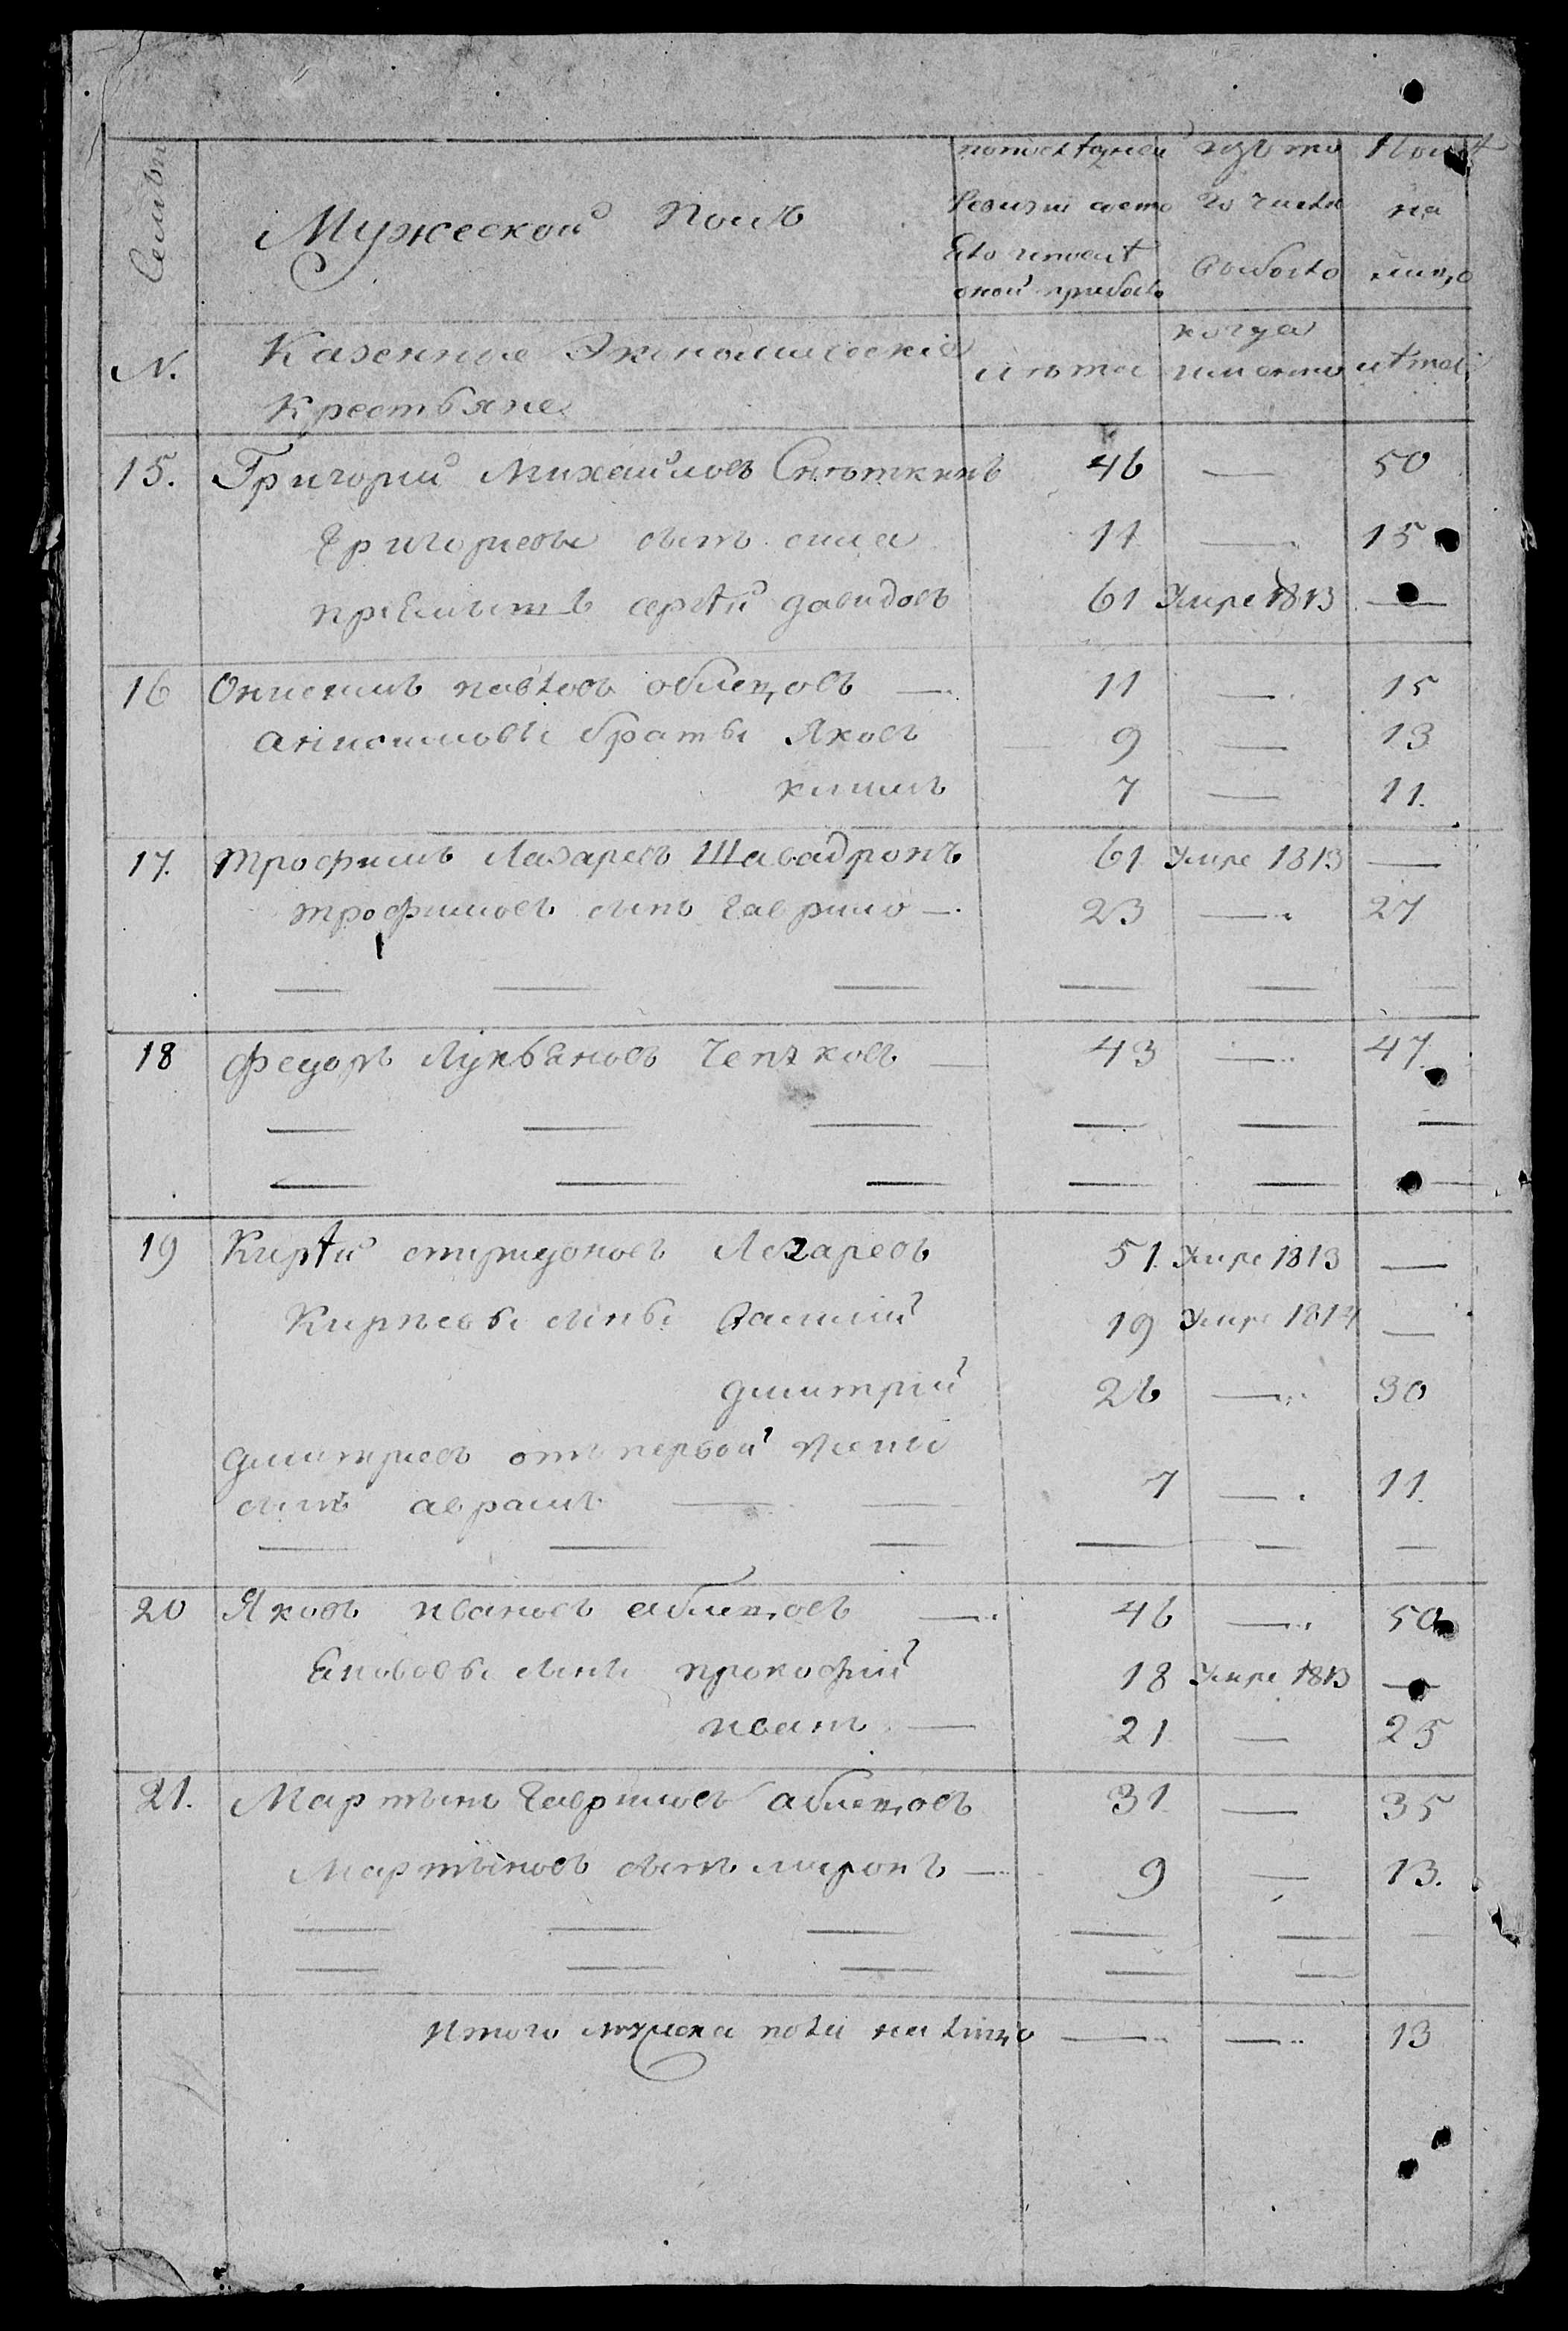 Семьи
Мужеской Полъ
по последней ревизіи состояло и после оной прибыло
изъ того числа выбыло
Ныне на лицо
N.
Казенные Экономическіе Крестьяне
лѣта
когда именно
лѣта
15. Григорий Михайловъ Снѣткинъ 46 — 50
Григорьевъ сынъ сила 11 — 15
пріемышъ сергѣй давидовъ 61 Умре 1813 —
16 Онисимъ павловъ облецовъ — 11 — 15
анисимовы братьи Яковъ 9 — 13
климъ 7 — 11.
17. трофимъ Лазаревъ Шавадронъ 61 Умре 1813 —
трофимовъ сынъ гаврило — 23 — 27
18 федоръ Лукьяновъ — 43 — 47
19 Кирѣй спиридоновъ Лазаревъ 51 Умре 1813 —
Кирѣевы сыны Василий 19 Умре 1814 —
дмитрий 26 — 30
дмитриевъ отъ первой жены
сынъ аврамъ — — 7 — 11.
20 Яковъ ивановъ облецовъ — 46 — 50
Яковлевы сыны прокофий 18 Умре 1813 —
иванъ — 21 — 25
21. Мартынъ гавриловъ облецовъ 31 — 35
Мартыновъ сынъ миронъ — 9 — 13.
Итого мужеска пола на лицо — — 13